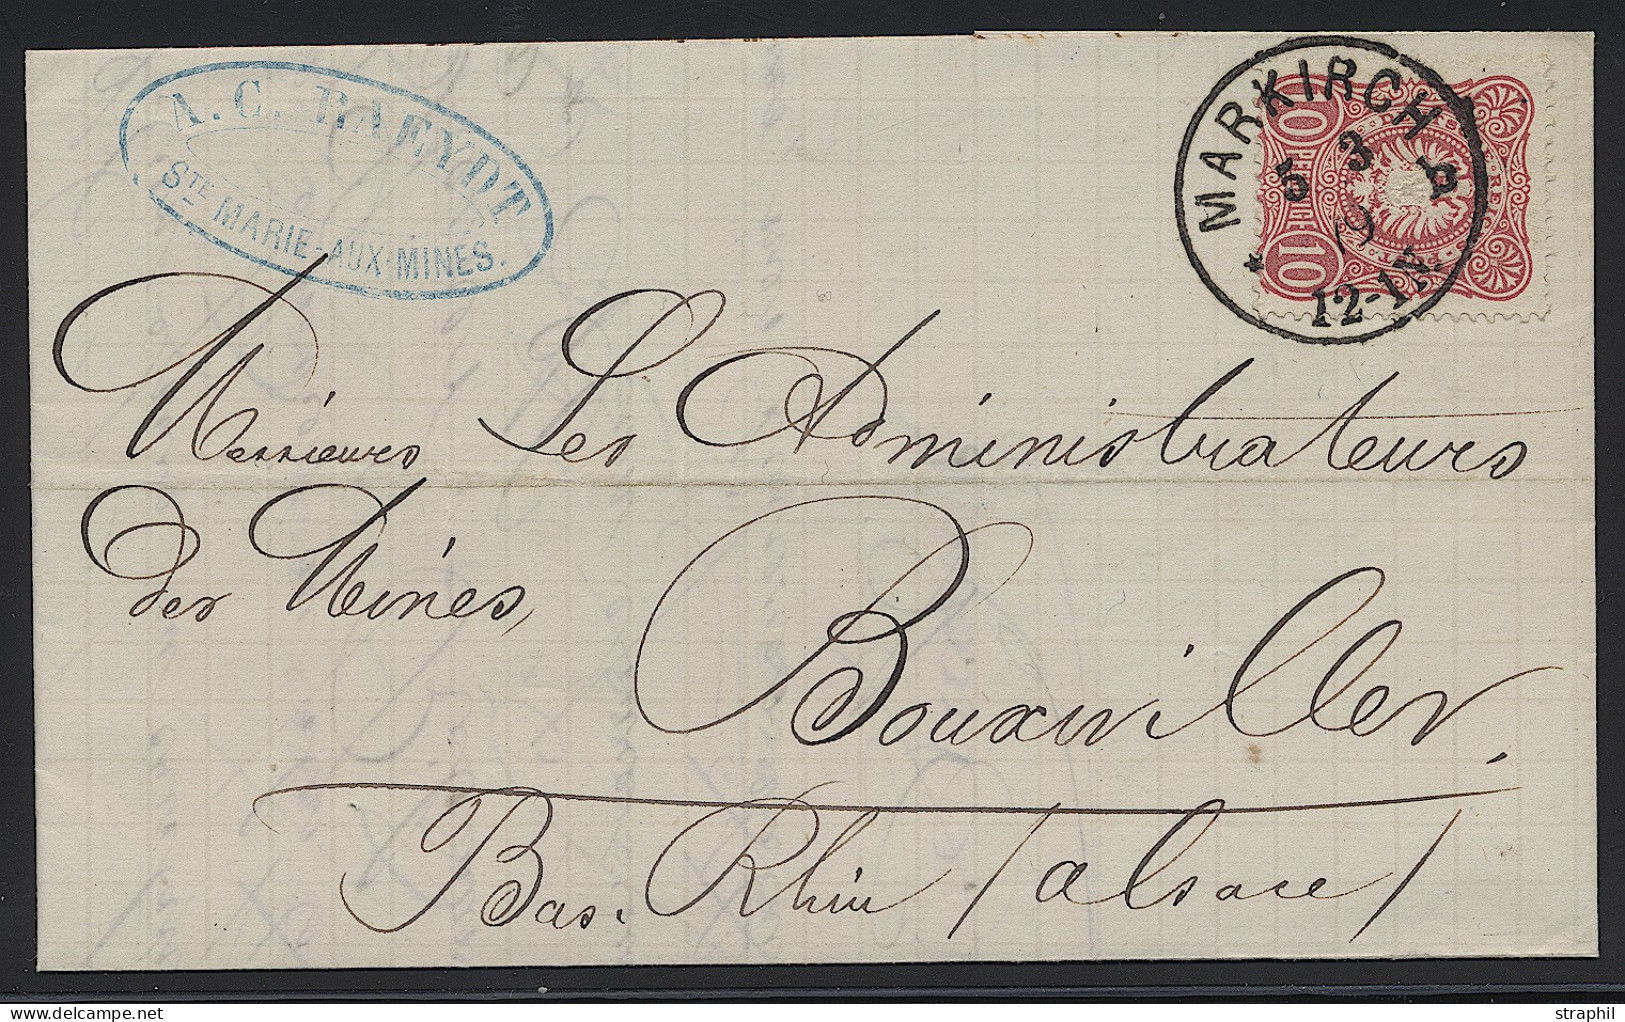 A. C. RAEYDT
STE MARIE-AUX-MINES.
MARKIRCH
5 3
79
12-1N.
10 PFENNIGE 10
DEUTSCHE REICHS
Messieurs Les Administrateurs
des Mines,
Bouxwiller.
Bas. Rhin / alsace /
© straphil